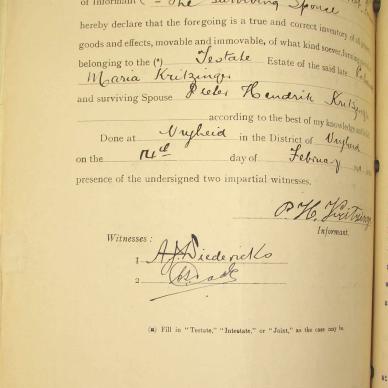 of Informant ( = The Surviving Spouse
hereby declare that the foregoing is a true and correct inventory of all
goods and effects, movable and immovable, of what kind soever,
belonging to the (*) Testate Estate of the said late
Maria Kritzinger
and surviving Spouse Pieter Hendrik Kritzinger
according to the best of my knowledge and
Done at Vryheid in the District of Vryheid
on the 14th day of February
presence of the undersigned two impartial witnesses.
P. H. Kritzinger
Informant.
Witnesses :
1 A. J. Diedericks
2
(*) Fill in "Testate," "Intestate," or "Joint," as the case may be.